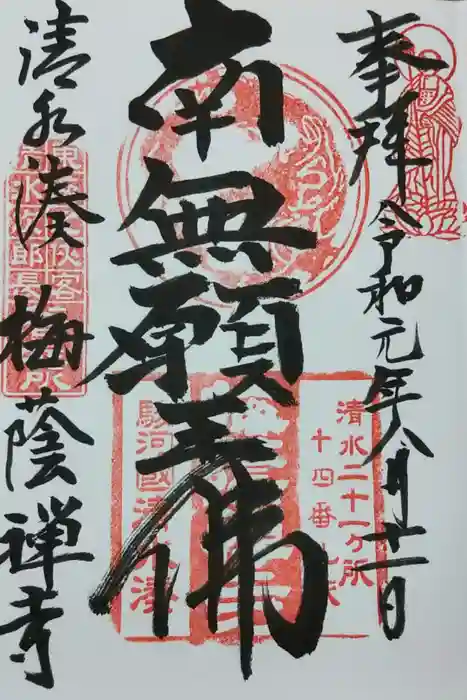 奉拝
令和元年八月十一日
南無願王佛
清水湊 梅蔭禅寺
清水二十一ヶ所
十四番
駿河國清水湊